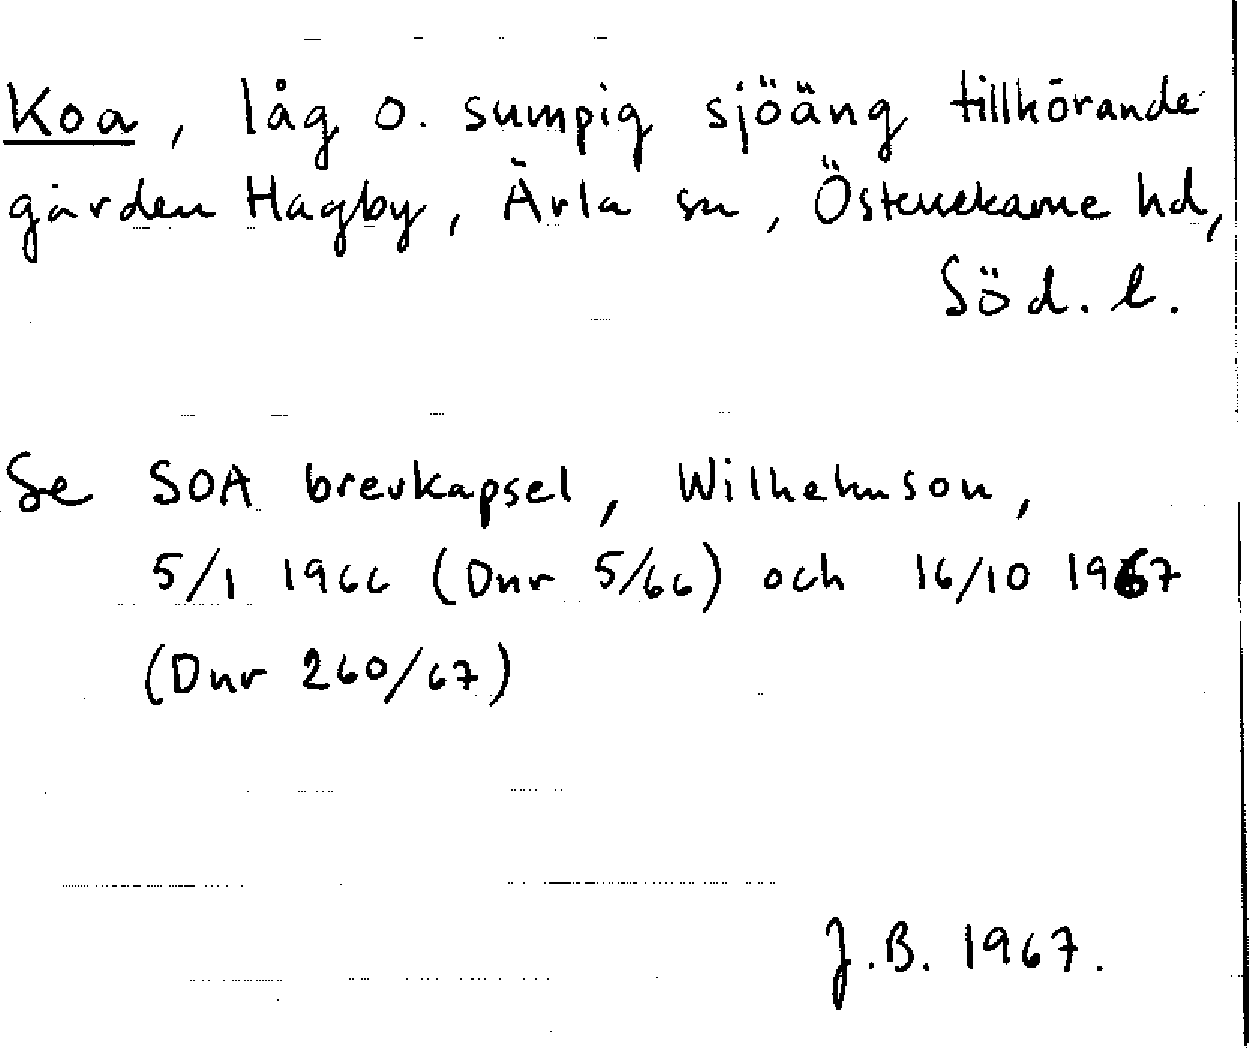 Koa, låg o. sumpig sjöäng tillhörande
gården Hagby, Ärla sn, Österrekarne hd,
Söd. l.
Se SOA brevkapsel, Wilhelmson,
5/1 1966 (Dnr 5/66) och 16/10 1967
(Dnr 260/67)
J.B. 1967.